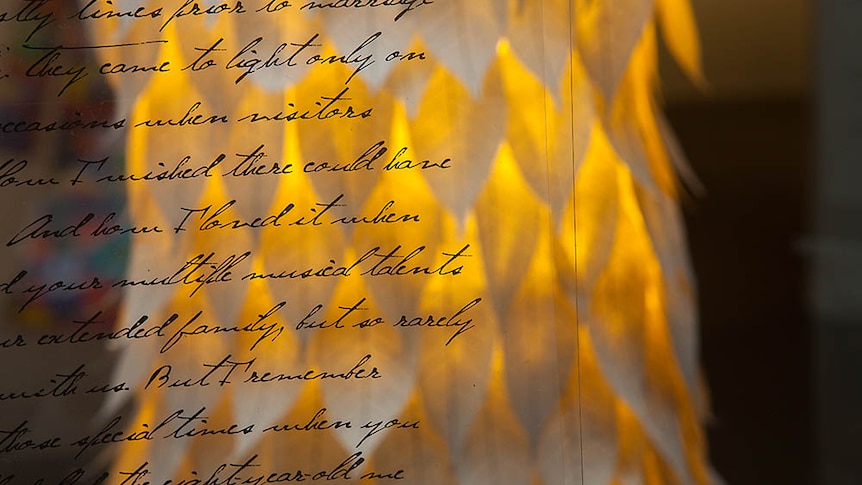 stly times prior to marriage
. they came to light only on
occasions when visitors
How I wished there could have
And how I loved it when
d your multiple musical talents
ur extended family, but so rarely
with us. But I remember
those special times when you
the eight-year-old me